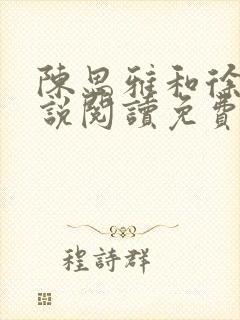 陳思雅和徐
說閱讀免費
程詩群